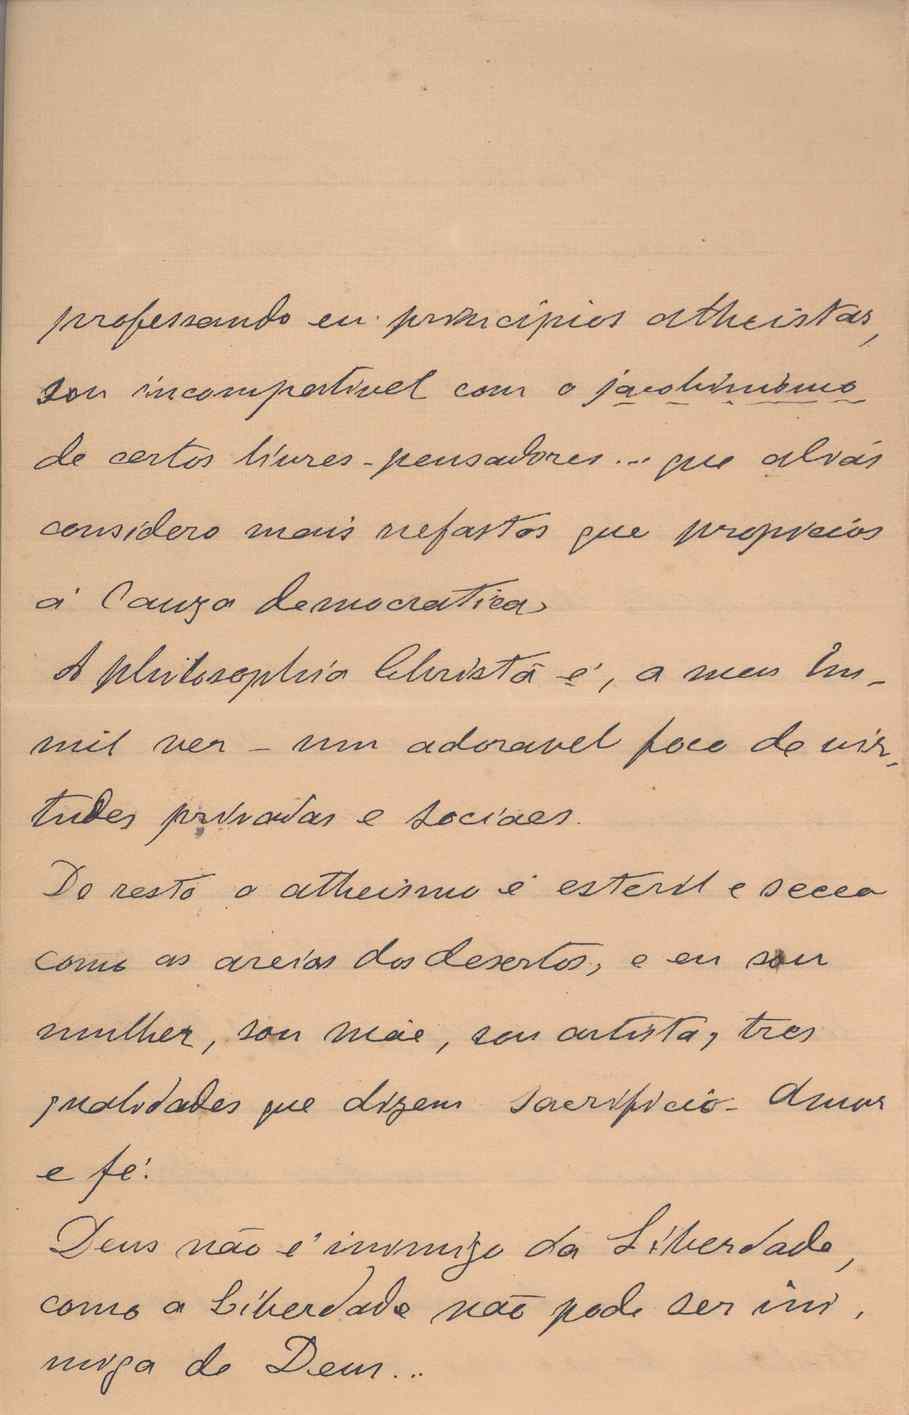 professando eu principios atheistas,
sou incompativel com o jacobinismo
de certos livres-pensadores... que aliás
considero mais nefastos que propicios
á Cauza democratica.
A philosophia Christã é, a meu hu-
mil ver - um adoravel foco de vir-
tudes privadas e sociaes.
De resto o atheismo é esteril e secco
como as areias dos desertos, e eu sou
mulher, sou mãe, sou artista, tres
qualidades que dizem sacrificio - Amor
e fé.
Deus não é inimigo da Liberdade,
como a Liberdade não pode ser ini-
miga de Deus...